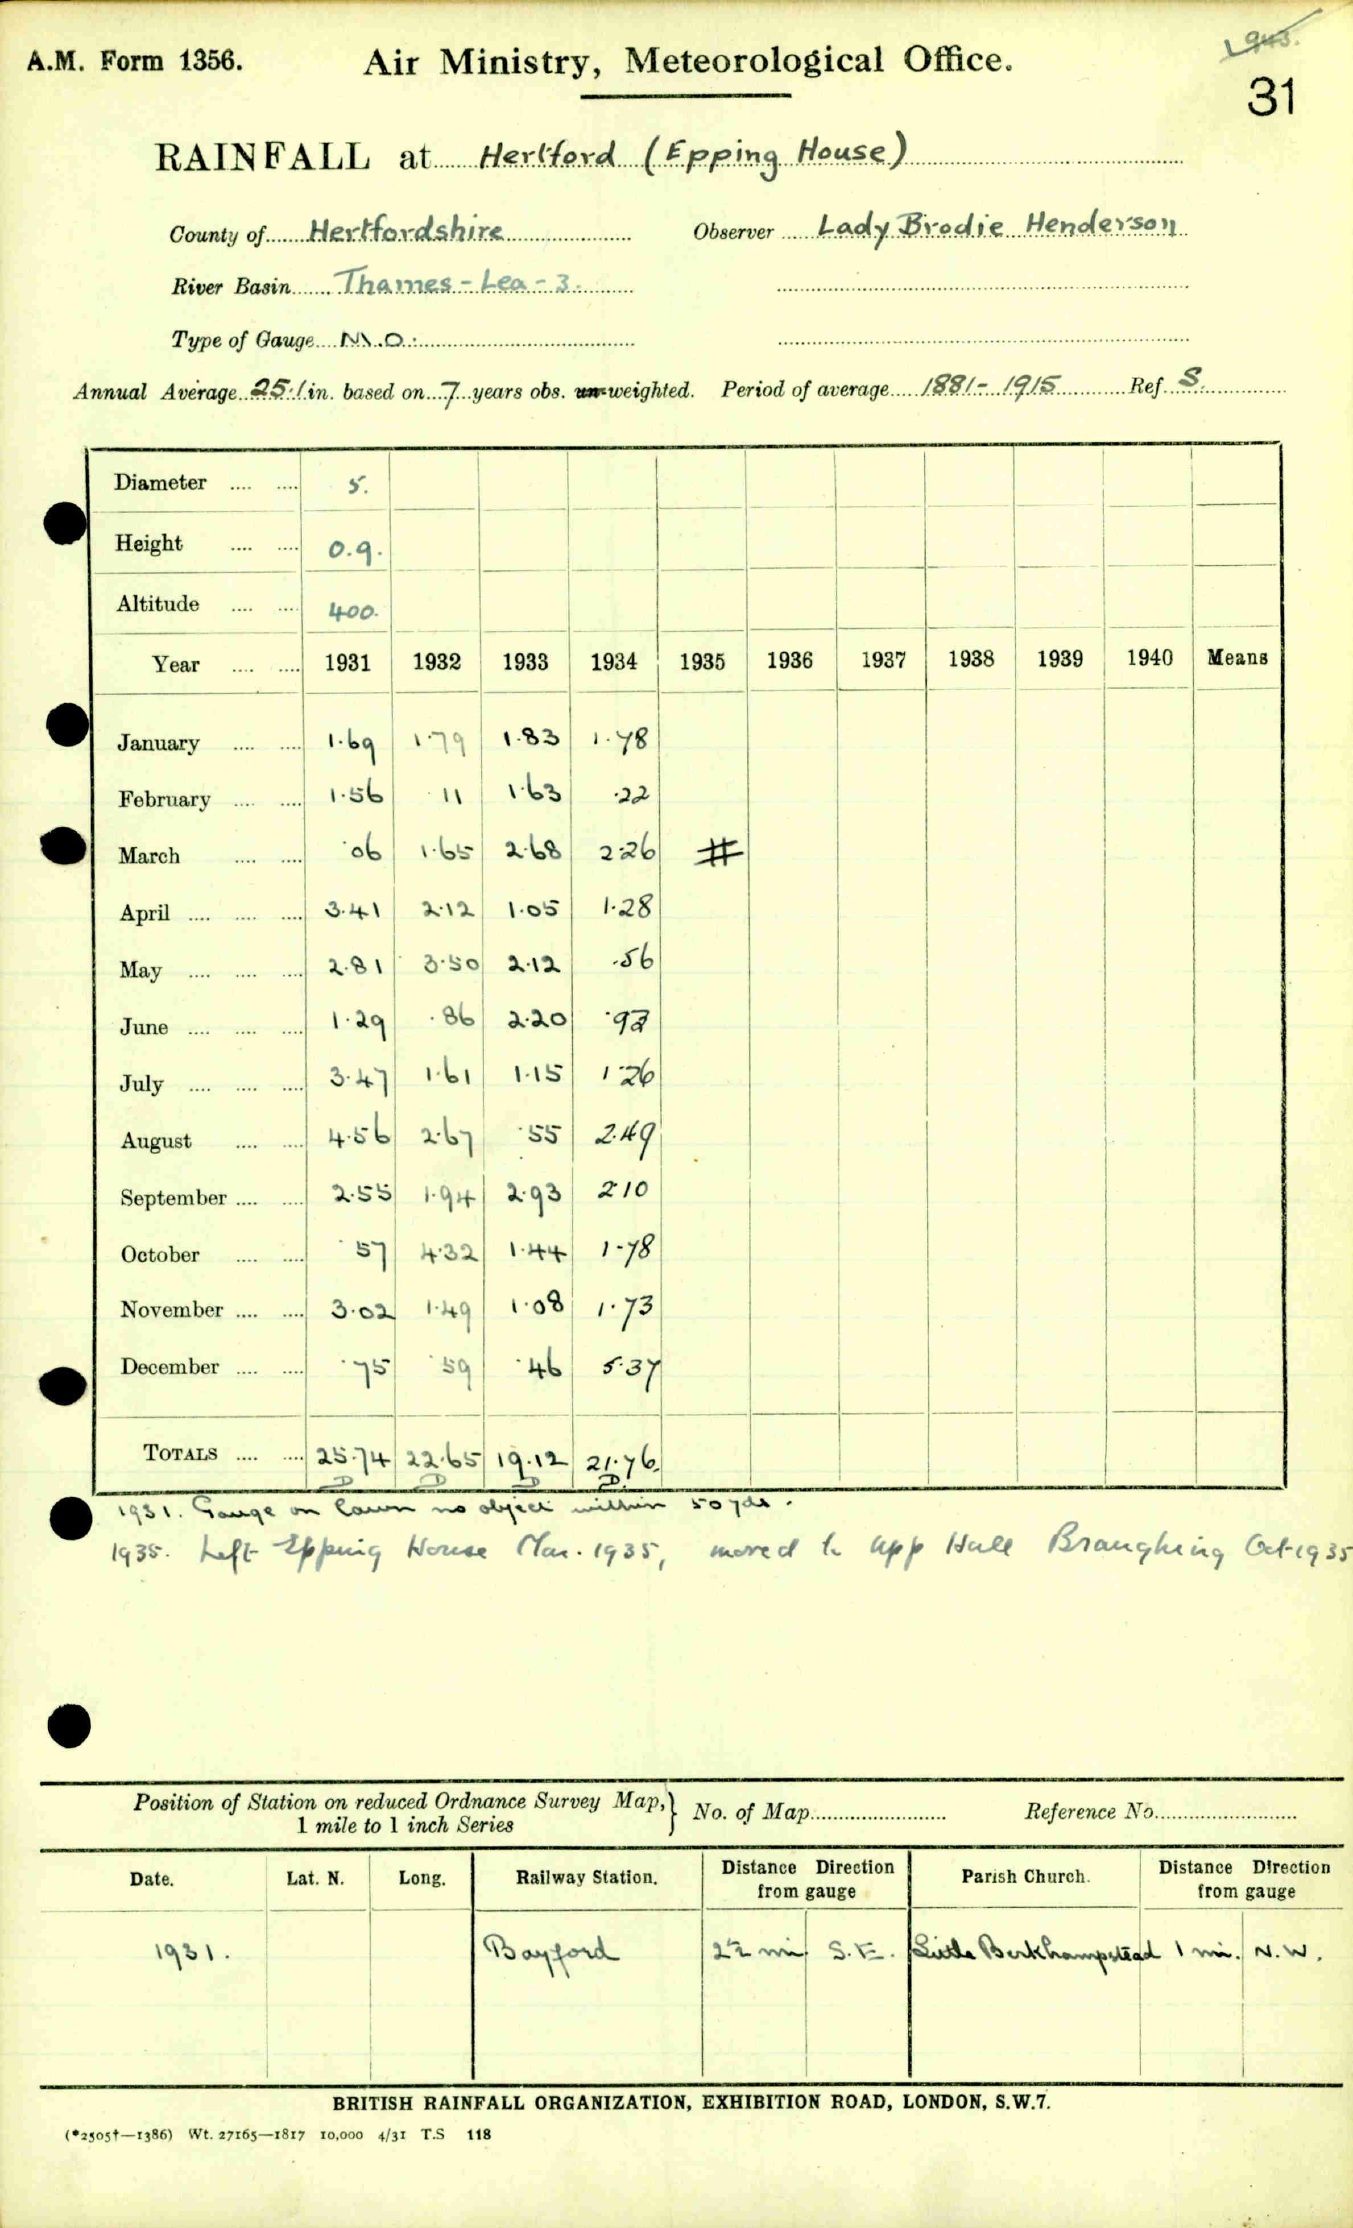 1943.
A.M. Form 1356. Air Ministry, Meteorological Office.
31
RAINFALL at Hertford (Epping House)
County of Hertfordshire Observer Lady Brodie Henderson
River Basin Thames - Lea - 3.
Type of Gauge M.O.
Annual Average 25.1 in. based on 7 years obs. un-weighted. Period of average 1881 - 1915 Ref S.
Diameter 5.
Height 0.9.
Altitude 400.
Year 1931 1932 1933 1934 1935 1936 1937 1938 1939 1940 Means
January 1.69 1.79 1.83 1.78
February 1.56 .11 1.63 .22
March .06 1.65 2.68 2.26 #
April 3.41 2.12 1.05 1.28
May 2.81 3.50 2.12 .56
June 1.29 .86 2.20 .93
July 3.47 1.61 1.15 1.26
August 4.56 2.67 .55 2.49
September 2.55 1.94 2.93 2.10
October .57 4.32 1.44 1.78
November 3.02 1.49 1.08 1.73
December .75 .59 .46 5.37
TOTALS 25.74 22.65 19.12 21.76.
D D D D.
1931. Gauge on lawn no object within 50 yds.
1935. Left Epping House Mar. 1935, moved to Upp Hall Braughing Oct 1935
Position of Station on reduced Ordnance Survey Map, } No. of Map Reference No.
1 mile to 1 inch Series
Date. Lat. N. Long. Railway Station. Distance Direction from gauge Parish Church. Distance Direction from gauge
1931. Bayford 2½ mi S.E. Little Berkhampstead 1 mi. N.W.
BRITISH RAINFALL ORGANIZATION, EXHIBITION ROAD, LONDON, S.W.7.
(*2505†—1386) Wt. 27165—1817 10,000 4/31 T.S 118